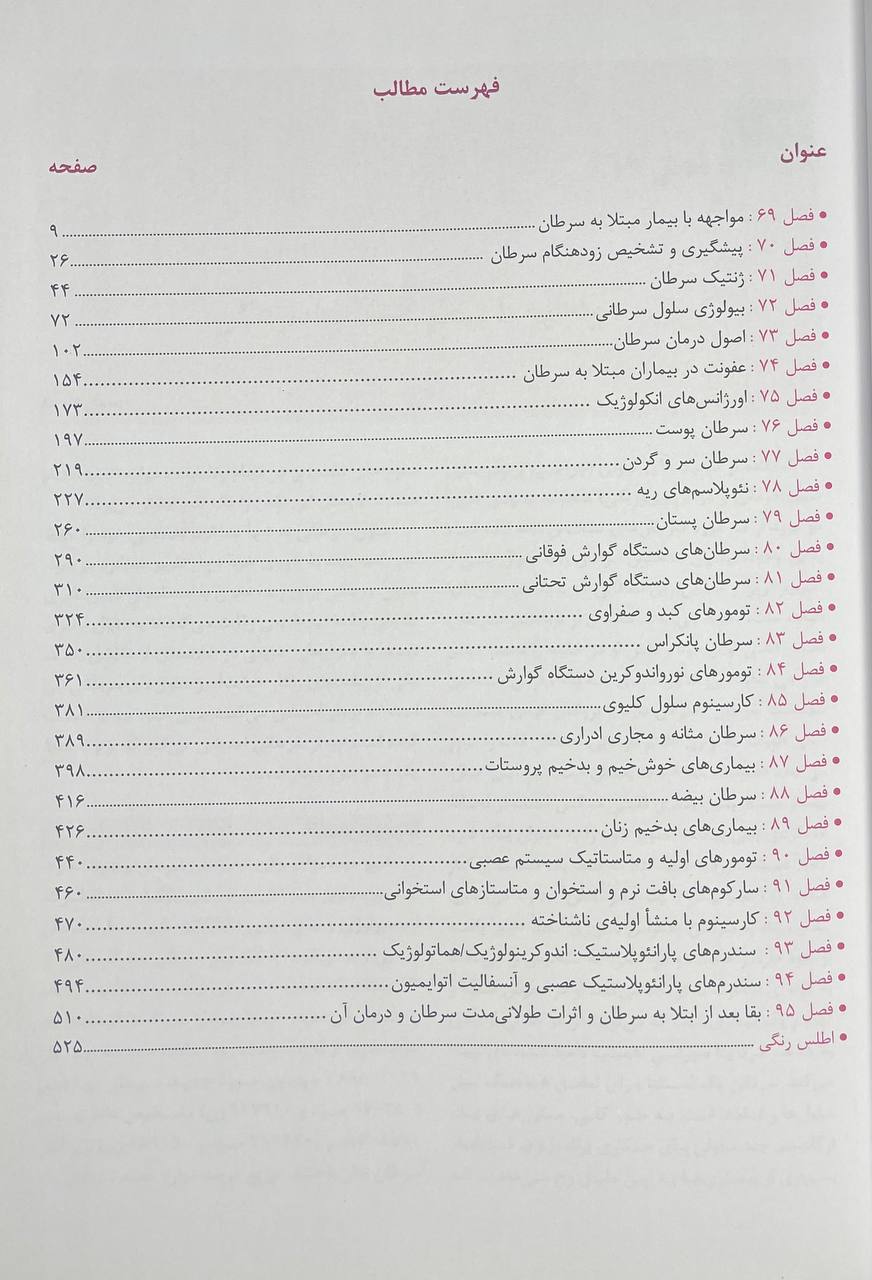 فهرست مطالب
عنوان
صفحه
• فصل ۶۹ : مواجهه با بیمار مبتلا به سرطان ........ ۹
• فصل ۷۰ : پیشگیری و تشخیص زودهنگام سرطان ........ ۲۶
• فصل ۷۱ : ژنتیک سرطان ........ ۴۴
• فصل ۷۲ : بیولوژی سلول سرطانی ........ ۷۲
• فصل ۷۳ : اصول درمان سرطان ........ ۱۰۲
• فصل ۷۴ : عفونت در بیماران مبتلا به سرطان ........ ۱۵۴
• فصل ۷۵ : اورژانس‌های انکولوژیک ........ ۱۷۳
• فصل ۷۶ : سرطان پوست ........ ۱۹۷
• فصل ۷۷ : سرطان سر و گردن ........ ۲۱۹
• فصل ۷۸ : نئوپلاسم‌های ریه ........ ۲۲۷
• فصل ۷۹ : سرطان پستان ........ ۲۶۰
• فصل ۸۰ : سرطان‌های دستگاه گوارش فوقانی ........ ۲۹۰
• فصل ۸۱ : سرطان‌های دستگاه گوارش تحتانی ........ ۳۱۰
• فصل ۸۲ : تومورهای کبد و صفراوی ........ ۳۲۴
• فصل ۸۳ : سرطان پانکراس ........ ۳۵۰
• فصل ۸۴ : تومورهای نورواندوکرین دستگاه گوارش ........ ۳۶۱
• فصل ۸۵ : کارسینوم سلول کلیوی ........ ۳۸۱
• فصل ۸۶ : سرطان مثانه و مجاری ادراری ........ ۳۸۹
• فصل ۸۷ : بیماری‌های خوش‌خیم و بدخیم پروستات ........ ۳۹۸
• فصل ۸۸ : سرطان بیضه ........ ۴۱۶
• فصل ۸۹ : بیماری‌های بدخیم زنان ........ ۴۲۶
• فصل ۹۰ : تومورهای اولیه و متاستاتیک سیستم عصبی ........ ۴۴۰
• فصل ۹۱ : سارکوم‌های بافت نرم و استخوان و متاستازهای استخوانی ........ ۴۶۰
• فصل ۹۲ : کارسینوم با منشأ اولیه‌ی ناشناخته ........ ۴۷۰
• فصل ۹۳ : سندرم‌های پارانئوپلاستیک: اندوکرینولوژیک/هماتولوژیک ........ ۴۸۰
• فصل ۹۴ : سندرم‌های پارانئوپلاستیک عصبی و آنسفالیت اتوایمیون ........ ۴۹۴
• فصل ۹۵ : بقا بعد از ابتلا به سرطان و اثرات طولانی‌مدت سرطان و درمان آن ........ ۵۱۰
• اطلس رنگی ........ ۵۲۵